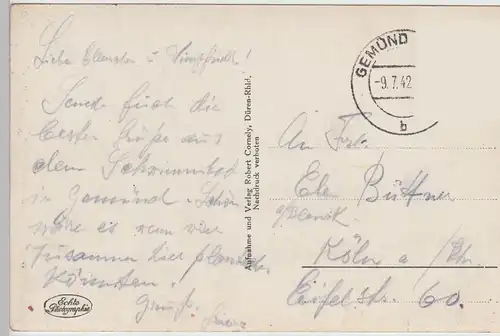 Liebe
Sende Euch die
besten Grüße aus
dem Schwimmbad
in Gemünd. Schön
wäre es wenn wir
zusammen hier
könnten.
Gruß.
Echte
Photographie
Aufnahme und Verlag Robert Cornely, Düren-Rhld.
Nachdruck verboten
GEMÜND
-9.7.42
b
An Frl.
Büttner
Köln a/Rh.
Eifelstr. 60.